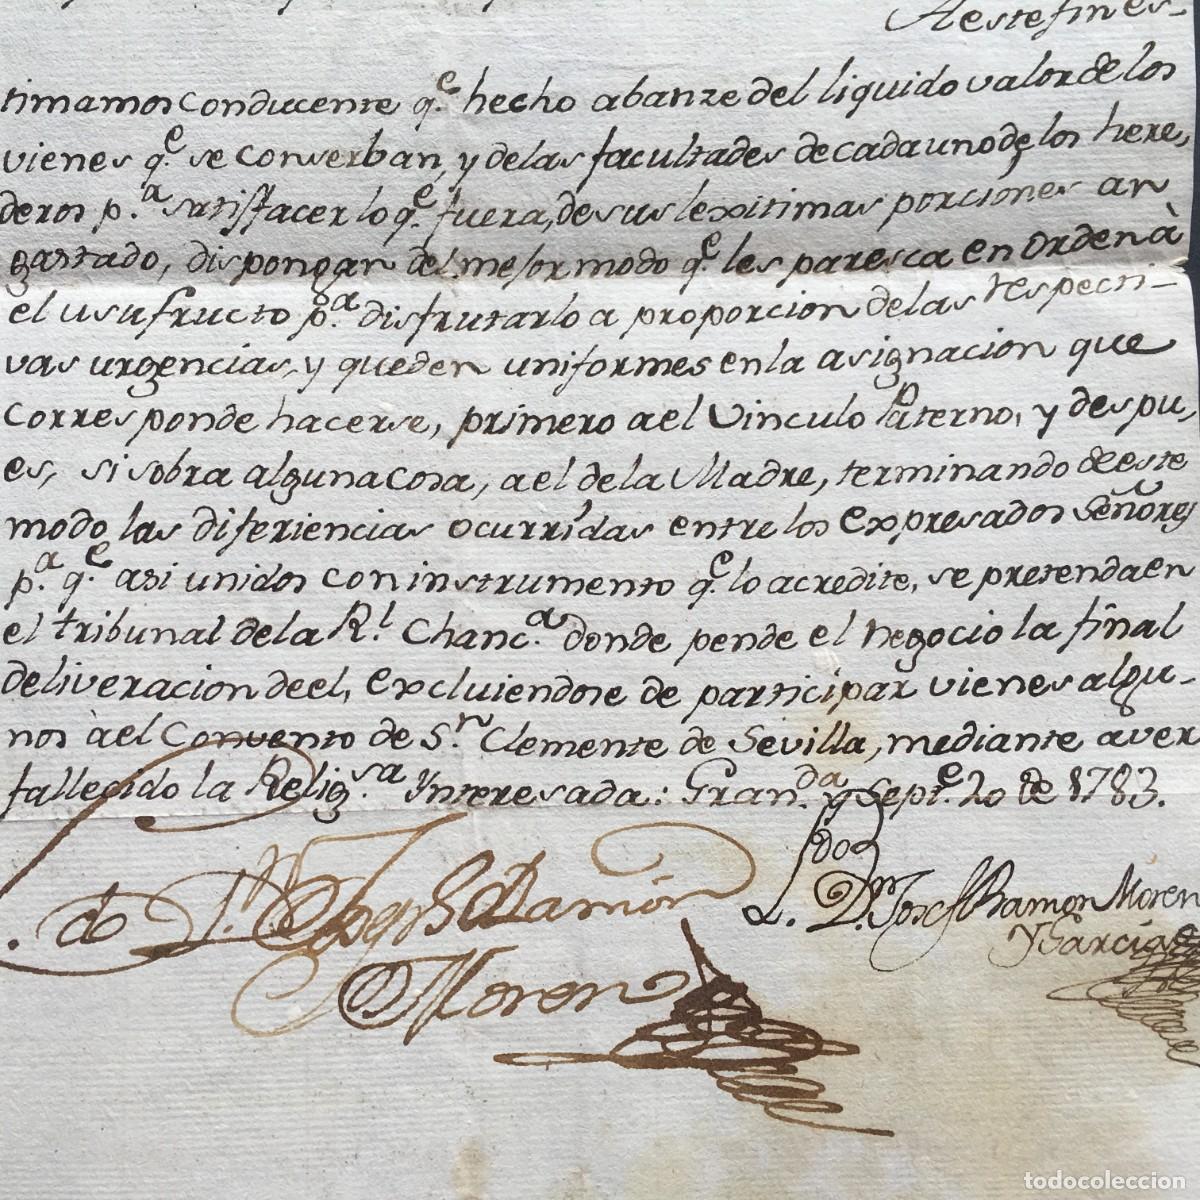 A este fin es-
timamos conducente q.e hecho abanze del liquido valor de los
vienes q.e se conserban, y de las facultades de cada uno de los here,
deros p.a satisfacer lo q.e fuera, de sus lexitimas porciones an
gastado, dispongan del mejor modo q.e les paresca en orden à
el usufructo p.a disfrutarlo a proporcion de las respecti-
vas urgencias, y queden uniformes en la asignacion que
corresponde hacerse, primero a el Vinculo Paterno, y despu,
es, si sobra alguna cosa, a el de la Madre, terminando de este
modo las diferiencias ocurridas entre los expresados Señores
p.a q.e asi unidos con instrumento q.e lo acredite, se pretenda en
el tribunal de la R.l Chanc.a donde pende el negocio la final
deliveracion de el, excluiendose de participar vienes algu-
nos à el Convento de S.n Clemente de Sevilla, mediante aver
fallecido la Relig.sa Ynteresada: Gran.da y Sept.e 20 de 1783.
L.do D.n Josef Ramon Moren
y Garcia
do D.n Josef Ramón
Moreno
todocoleccion